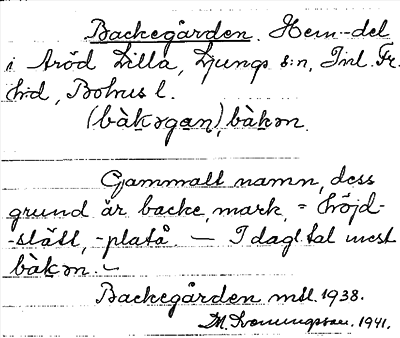 Backegården. Hem.-del
i Aröd Lilla, Ljungs s:n, Inl. Fr.
h:d, Bohus l.
(bàkəgan), bàkən.
Gammalt namn, dess
grund är backe, mark, = höjd-
-slätt, -platå. — I dagl. tal mest
bàkən. —
Backegården mtl. 1938.
1941.